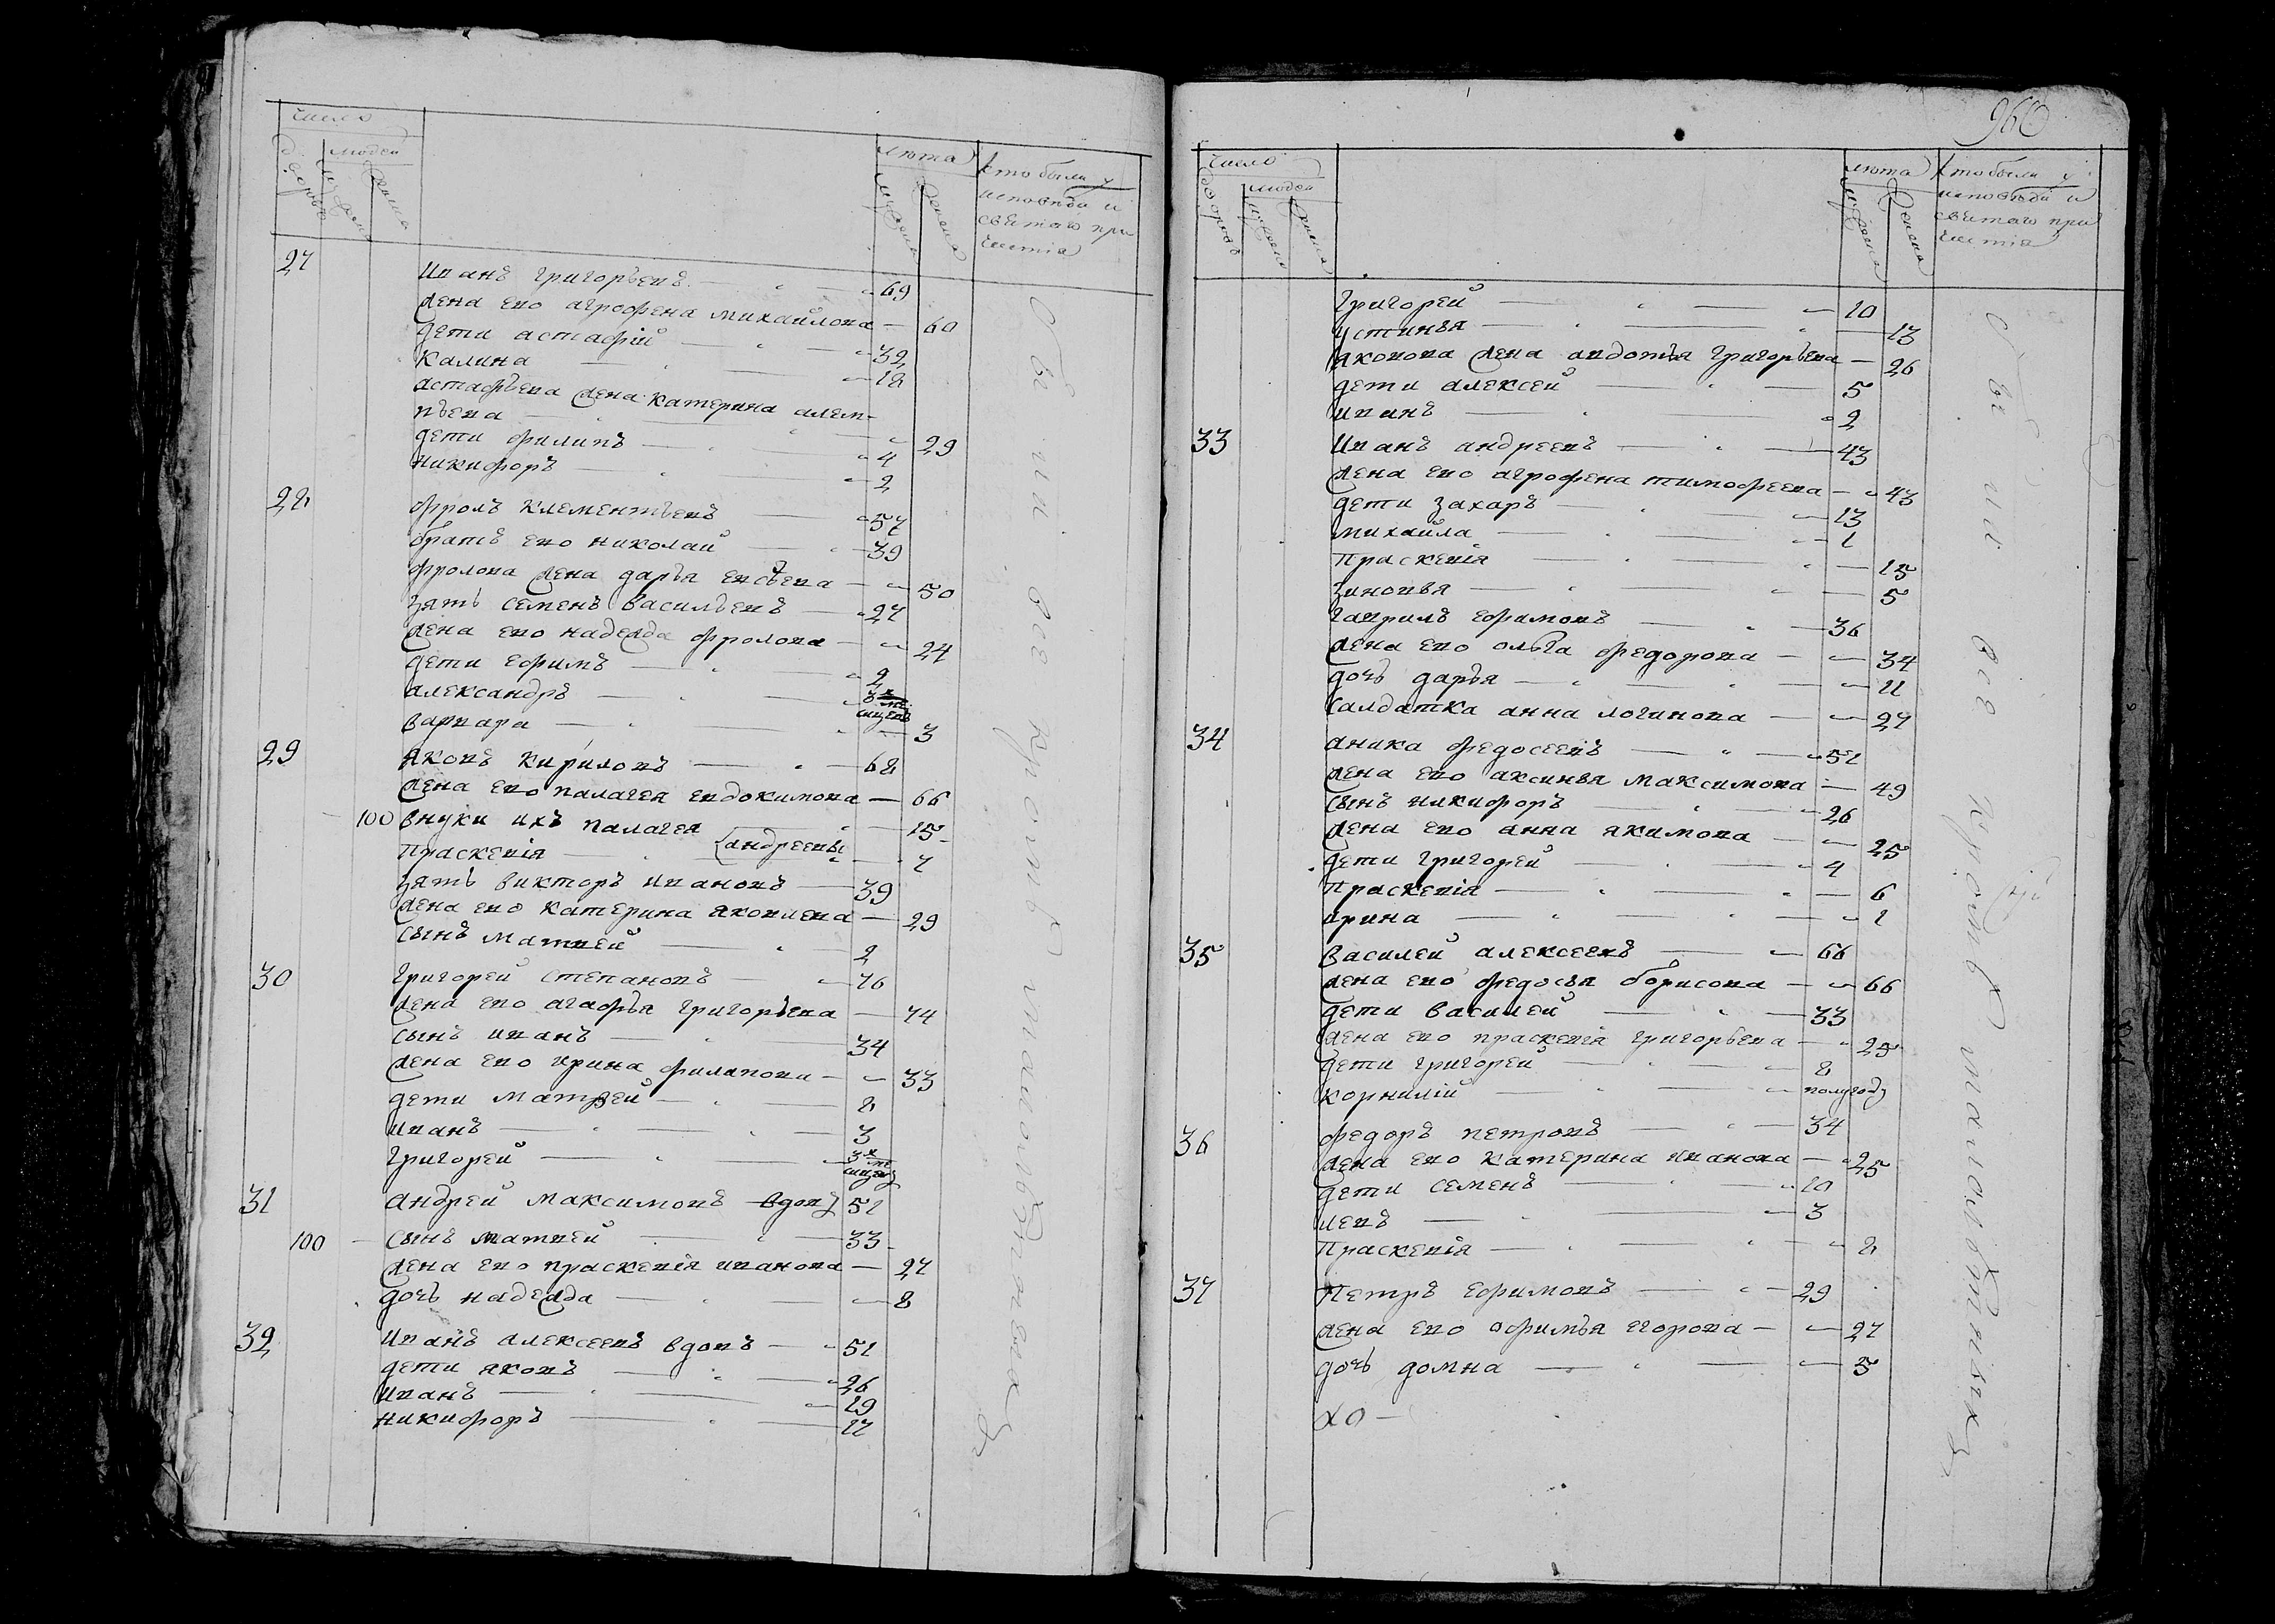 число
дворовъ
людей
мужеска
женска
лѣта
мужеска
женска
кто были у
исповѣди и
святаго при
частія
27 Иванъ григорьевъ 69
жена ево агрофена михайлова 60
дети астафій 32
калина 18
астафьева жена катерина алем-
пьева 29
дети филипъ 4
никифоръ 2
28 фролъ клементьевъ 57
братъ ево николай 39
фролова жена дарья евсѣева 50
зять семенъ васильевъ 27
жена ево надежда фролова 24
дети ефимъ 2
александръ 3х ме
сицевъ
варвара 3
29 яковъ кириловъ 68
жена ево палагея евдокимова 66
100 внуки ихъ палагея 15
праскевія андреевы 7
зять викторъ ивановъ 39
жена ево катерина яковлева 29
сынъ матвей 2
30 григорей степановъ 76
жена ево агафья григорьева 74
сынъ иванъ 34
жена ево ирина филипова 33
дети матвей 8
иванъ 3
григорей 3х ме
сицовъ
31 андрей максимовъ вдовъ 51
100 сынъ матвей 33
жена ево праскевія иванова 27
дочь надежда 8
32 иванъ алексеевъ вдовъ 51
дети яковъ 26
иванъ 19
никифоръ 17
960
число
дворовъ
людей
мужеска
женска
лѣта
мужеска
женска
кто были у
исповѣди и
святаго при
частія
григорей 10
устинья 13
яковова жена авдотья григорьева 26
дети алексей 5
иванъ 2
33 иванъ андреевъ 43
жена ево агрофена тимофеева 43
дети захаръ 13
михайла 1
праскевія 15
зиновья 5
гаврилъ ефимовъ 36
жена ево ольга федорова 34
дочь дарья 11
салдатка анна логинова 27
34 аника федосеевъ 51
жена ево аксинья максимова 49
сынъ никифоръ 26
жена ево анна якимова 25
дети григорей 4
праскевія 6
ирина 1
35 василей алексеевъ 66
жена ево федосья борисова 66
дети василей 33
жена ево праскевія григорьева 25
дети григорей 8
корнилій полугоду
36 федоръ петровъ 34
жена ево катерина иванова 25
дети семенъ 10
левъ 3
праскевія 8
37 петръ ефимовъ 29
жена ево афимья егорова 27
дочь домна 5